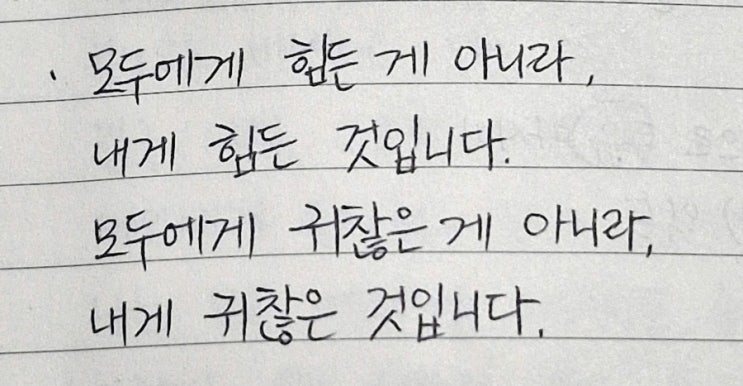 · 모두에게 힘든 게 아니라,
내게 힘든 것입니다.
모두에게 귀찮은 게 아니라,
내게 귀찮은 것입니다.